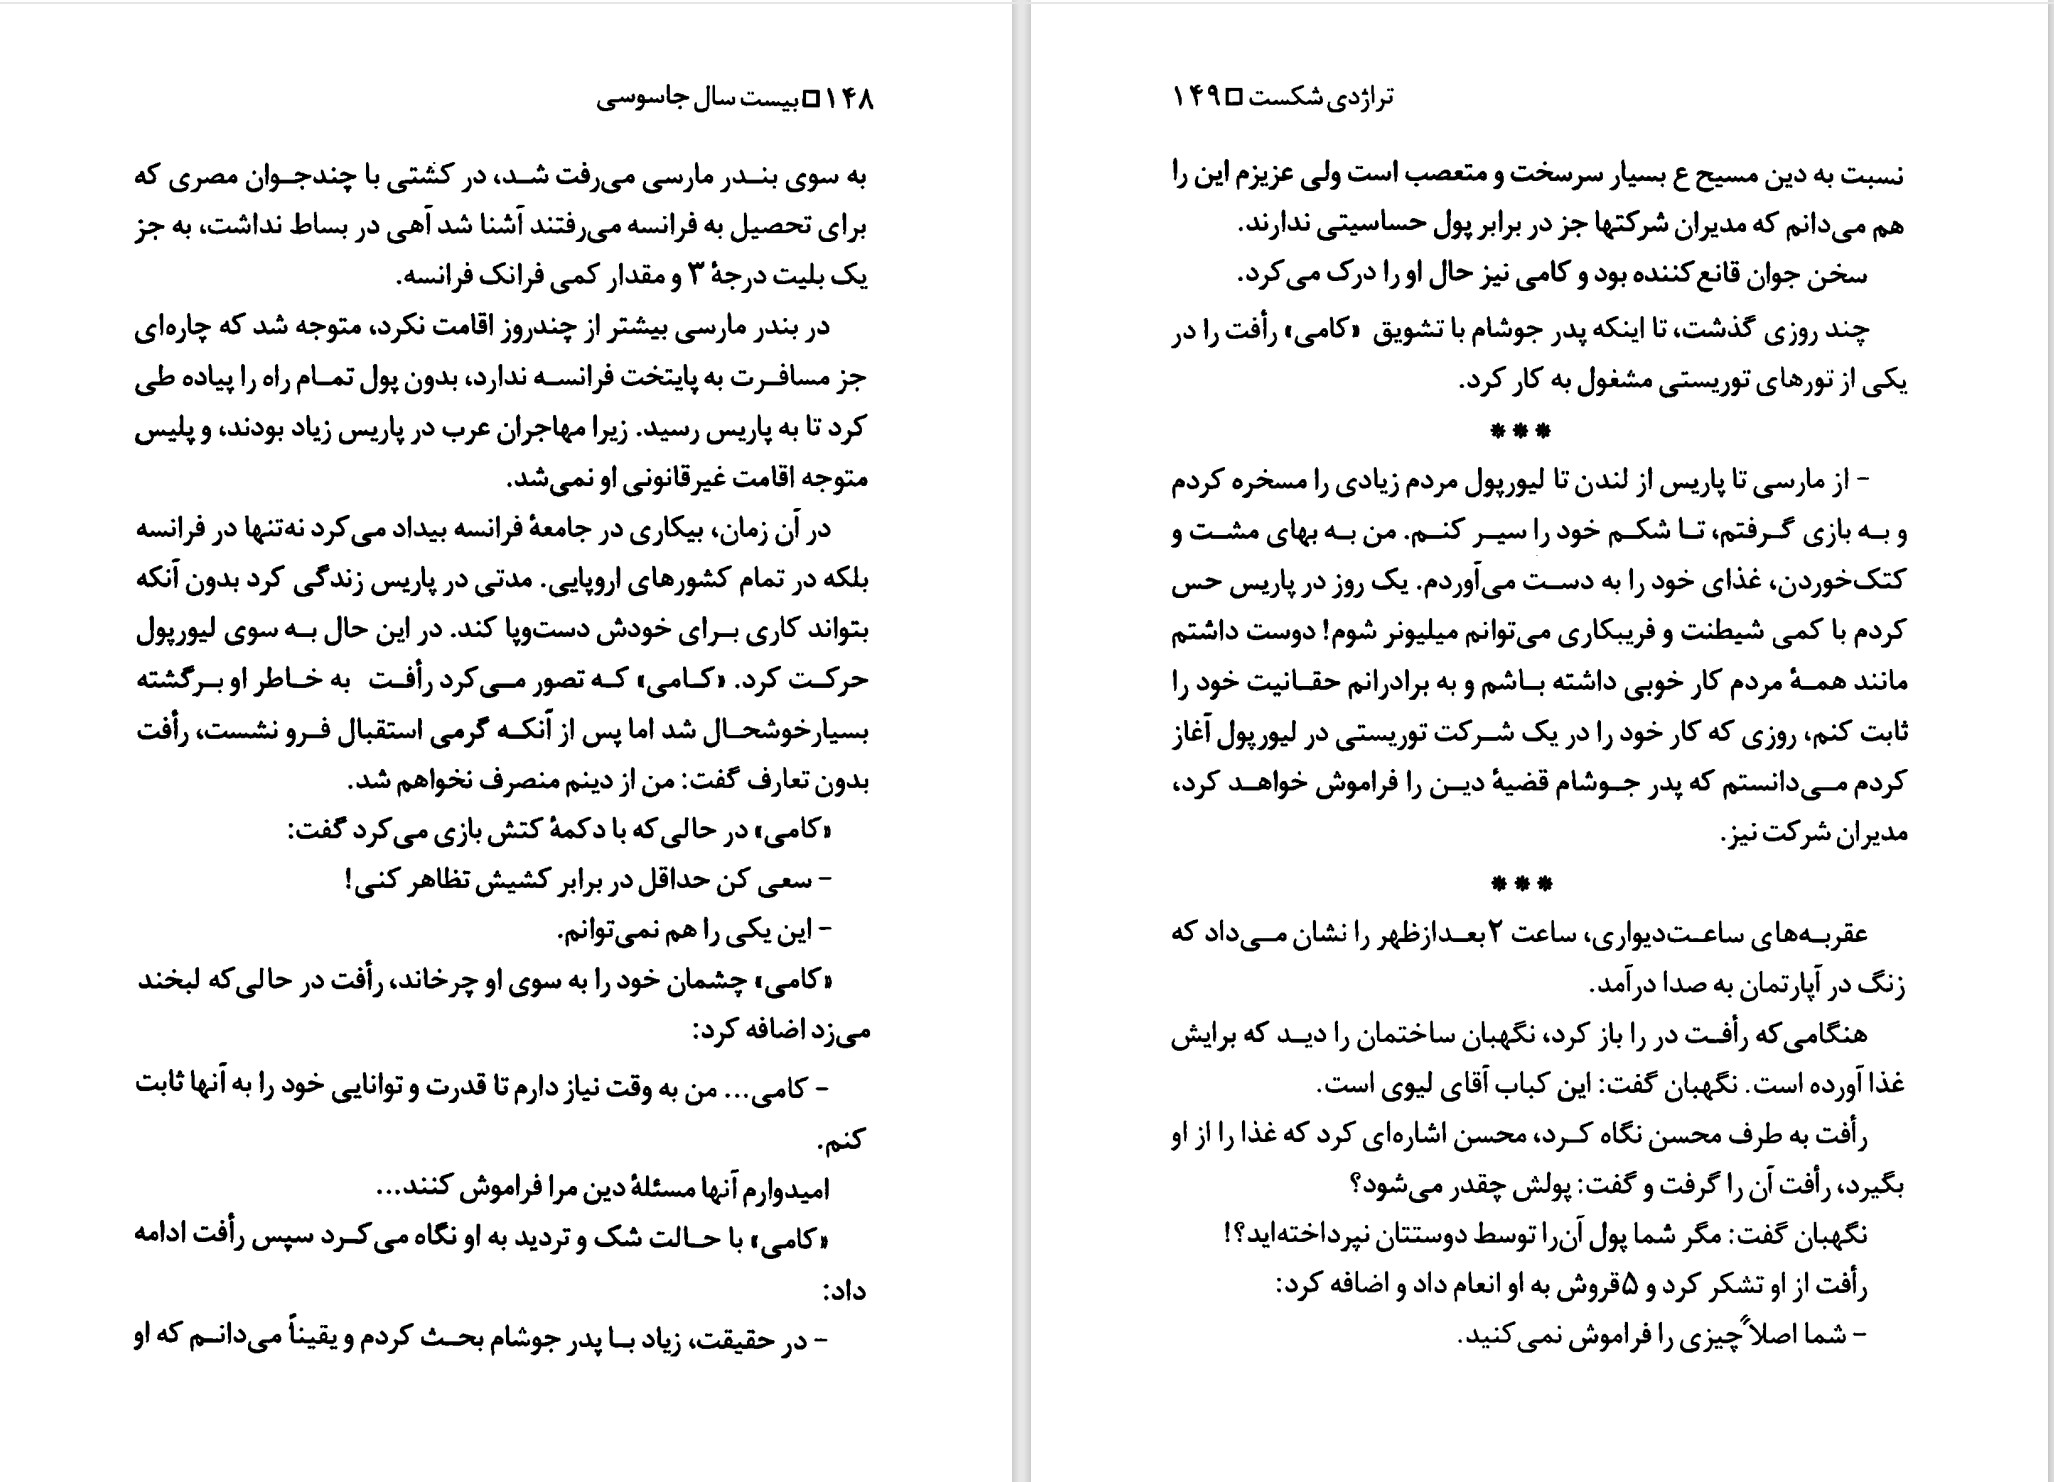 ۱۴۸ □ بیست سال جاسوسی
به سوی بندر مارسی می‌رفت شد، در کشتی با چندجوان مصری که
برای تحصیل به فرانسه می‌رفتند آشنا شد آهی در بساط نداشت، به جز
یک بلیت درجهٔ ۳ و مقدار کمی فرانک فرانسه.
در بندر مارسی بیشتر از چندروز اقامت نکرد، متوجه شد که چاره‌ای
جز مسافرت به پایتخت فرانسه ندارد، بدون پول تمام راه را پیاده طی
کرد تا به پاریس رسید. زیرا مهاجران عرب در پاریس زیاد بودند، و پلیس
متوجه اقامت غیرقانونی او نمی‌شد.
در آن زمان، بیکاری در جامعهٔ فرانسه بیداد می‌کرد نه‌تنها در فرانسه
بلکه در تمام کشورهای اروپایی. مدتی در پاریس زندگی کرد بدون آنکه
بتواند کاری برای خودش دست‌وپا کند. در این حال به سوی لیورپول
حرکت کرد. «کامی» که تصور می‌کرد رأفت به خاطر او برگشته
بسیارخوشحال شد اما پس از آنکه گرمی استقبال فرو نشست، رأفت
بدون تعارف گفت: من از دینم منصرف نخواهم شد.
«کامی» در حالی‌که با دکمهٔ کتش بازی می‌کرد گفت:
- سعی کن حداقل در برابر کشیش تظاهر کنی!
- این یکی را هم نمی‌توانم.
«کامی» چشمان خود را به سوی او چرخاند، رأفت در حالی‌که لبخند
می‌زد اضافه کرد:
- کامی... من به وقت نیاز دارم تا قدرت و توانایی خود را به آنها ثابت
کنم.
امیدوارم آنها مسئلهٔ دین مرا فراموش کنند...
«کامی» با حالت شک و تردید به او نگاه می‌کرد سپس رأفت ادامه
داد:
- در حقیقت، زیاد با پدر جوشام بحث کردم و یقیناً می‌دانم که او
تراژدی شکست □ ۱۴۹
نسبت به دین مسیح ع بسیار سرسخت و متعصب است ولی عزیزم این را
هم می‌دانم که مدیران شرکتها جز در برابر پول حساسیتی ندارند.
سخن جوان قانع‌کننده بود و کامی نیز حال او را درک می‌کرد.
چند روزی گذشت، تا اینکه پدر جوشام با تشویق «کامی» رأفت را در
یکی از تورهای توریستی مشغول به کار کرد.
***
- از مارسی تا پاریس از لندن تا لیورپول مردم زیادی را مسخره کردم
و به بازی گرفتم، تا شکم خود را سیر کنم. من به بهای مشت و
کتک‌خوردن، غذای خود را به دست می‌آوردم. یک روز در پاریس حس
کردم با کمی شیطنت و فریبکاری می‌توانم میلیونر شوم! دوست داشتم
مانند همهٔ مردم کار خوبی داشته باشم و به برادرانم حقانیت خود را
ثابت کنم، روزی که کار خود را در یک شرکت توریستی در لیورپول آغاز
کردم می‌دانستم که پدر جوشام قضیهٔ دین را فراموش خواهد کرد،
مدیران شرکت نیز.
***
عقربه‌های ساعت‌دیواری، ساعت ۲بعدازظهر را نشان می‌داد که
زنگ در آپارتمان به صدا درآمد.
هنگامی‌که رأفت در را باز کرد، نگهبان ساختمان را دید که برایش
غذا آورده است. نگهبان گفت: این کباب آقای لیوی است.
رأفت به طرف محسن نگاه کرد، محسن اشاره‌ای کرد که غذا را از او
بگیرد، رأفت آن را گرفت و گفت: پولش چقدر می‌شود؟
نگهبان گفت: مگر شما پول آن‌را توسط دوستتان نپرداخته‌اید؟!
رأفت از او تشکر کرد و ۵قروش به او انعام داد و اضافه کرد:
- شما اصلاً چیزی را فراموش نمی‌کنید.